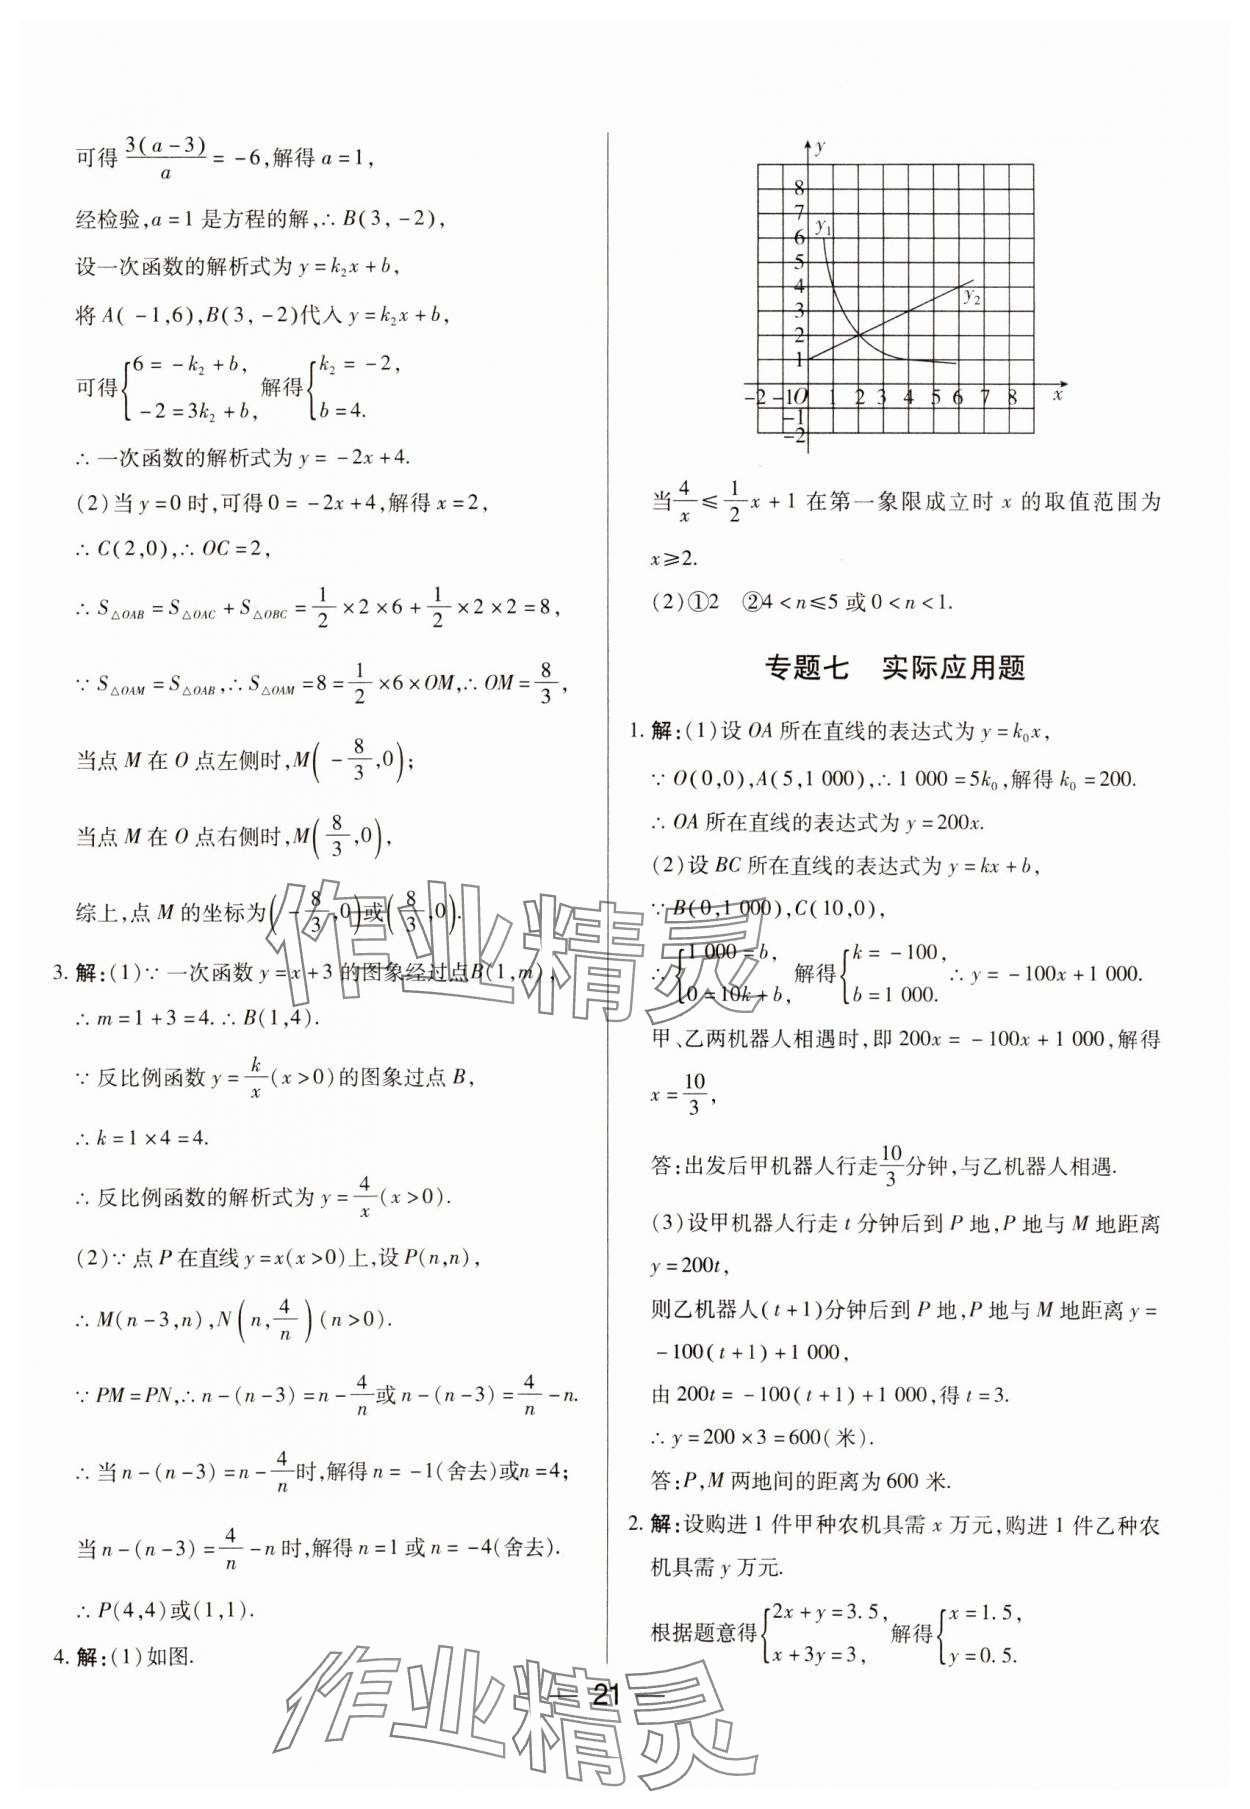 可得\frac{3(a-3)}{a}=-6,解得a=1,
经检验,a=1是方程的解,∴B(3,-2),
设一次函数的解析式为y=k₂x+b,
将A(-1,6),B(3,-2)代入y=k₂x+b,
可得{6=-k₂+b, -2=3k₂+b, 解得{k₂=-2, b=4.
∴一次函数的解析式为y=-2x+4.
(2)当y=0时,可得0=-2x+4,解得x=2,
∴C(2,0),∴OC=2,
∴S△OAB=S△OAC+S△OBC=\frac{1}{2}×2×6+\frac{1}{2}×2×2=8,
∵S△OAM=S△OAB,∴S△OAM=8=\frac{1}{2}×6×OM,∴OM=\frac{8}{3},
当点M在O点左侧时,M(-\frac{8}{3},0);
当点M在O点右侧时,M(\frac{8}{3},0),
综上,点M的坐标为(-\frac{8}{3},0)或(\frac{8}{3},0).
3.解:(1)∵一次函数y=x+3的图象经过点B(1,m),
∴m=1+3=4.∴B(1,4).
∵反比例函数y=\frac{k}{x}(x>0)的图象过点B,
∴k=1×4=4.
∴反比例函数的解析式为y=\frac{4}{x}(x>0).
(2)∵点P在直线y=x(x>0)上,设P(n,n),
∴M(n-3,n),N(n,\frac{4}{n})(n>0).
∵PM=PN,∴n-(n-3)=n-\frac{4}{n}或n-(n-3)=\frac{4}{n}-n.
∴当n-(n-3)=n-\frac{4}{n}时,解得n=-1(舍去)或n=4;
当n-(n-3)=\frac{4}{n}-n时,解得n=1或n=-4(舍去).
∴P(4,4)或(1,1).
4.解:(1)如图.
y
8
7
6
5
4
3
2
1
y₁
y₂
-2 -1O 1 2 3 4 5 6 7 8 x
-1
-2
当\frac{4}{x}≤\frac{1}{2}x+1在第一象限成立时x的取值范围为
x≥2.
(2)①2 ②4<n≤5或0<n<1.
专题七 实际应用题
1.解:(1)设OA所在直线的表达式为y=k₀x,
∵O(0,0),A(5,1 000),∴1 000=5k₀,解得k₀=200.
∴OA所在直线的表达式为y=200x.
(2)设BC所在直线的表达式为y=kx+b,
∵B(0,1 000),C(10,0),
∴{1 000=b, 0=10k+b, 解得{k=-100, b=1 000. ∴y=-100x+1 000.
甲、乙两机器人相遇时,即200x=-100x+1 000,解得
x=\frac{10}{3},
答:出发后甲机器人行走\frac{10}{3}分钟,与乙机器人相遇.
(3)设甲机器人行走t分钟后到P地,P地与M地距离
y=200t,
则乙机器人(t+1)分钟后到P地,P地与M地距离y=
-100(t+1)+1 000,
由200t=-100(t+1)+1 000,得t=3.
∴y=200×3=600(米).
答:P,M两地间的距离为600米.
2.解:设购进1件甲种农机具需x万元,购进1件乙种农
机具需y万元.
根据题意得{2x+y=3.5, x+3y=3, 解得{x=1.5, y=0.5.
— 21 —
作业精灵
作业精灵